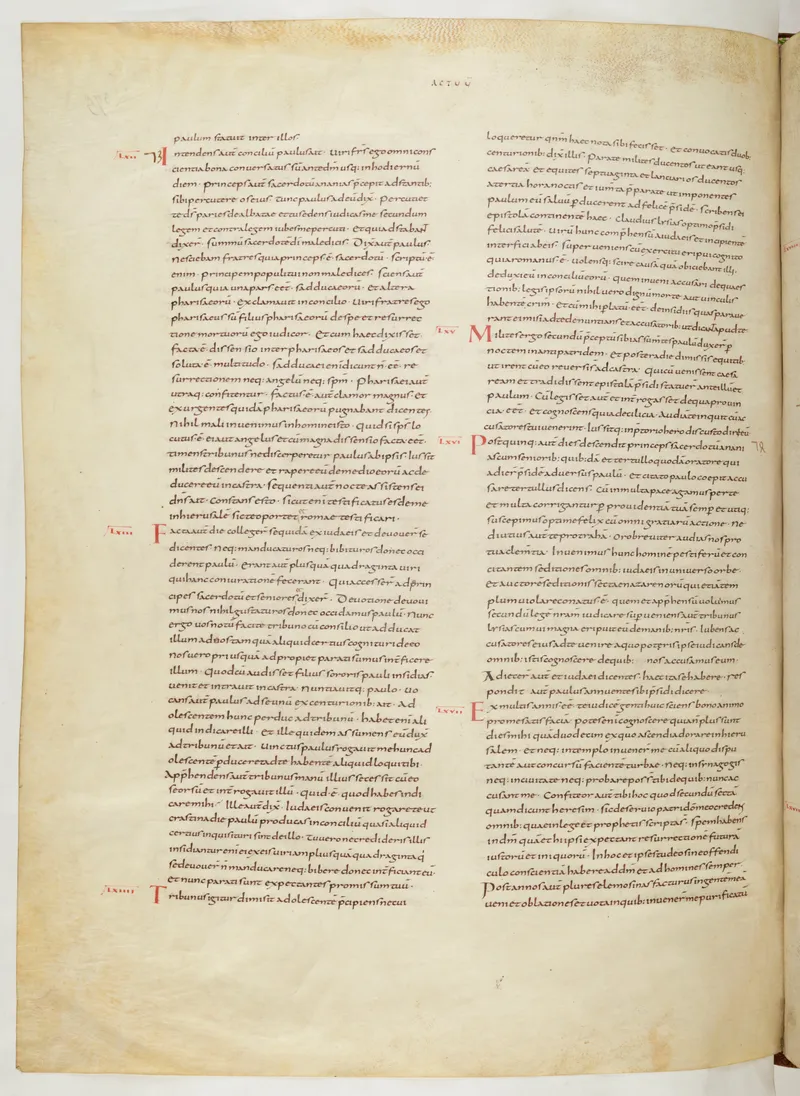 ACTUU
paulum statuit inter illos
LXII Intendens aut conciliū paulus ait · Uiri frs ego omni cons
cientia bona conuersatus sū ante dm usq; in hodiernū
diem · princeps aut sacerdotū ananias p̄cepit adstantib;
sibi percutere os eius · tunc paulus ad eū dix · Percutiet
te ds paries dealbatae et tu sedens iudicas me secundum
legem et contra legem iubes me percuti · Et qui adstabant
dixer · summū sacerdotē di maledicis · Dixit aut paulus
nesciebam fratres quia princeps ē sacerdotū · scriptū ē
enim · principem populi tui non maledices · sciens aut
paulus quia una pars eēt · sadducaeorū · et altera
pharisaeorū · exclamauit in concilio · Uiri fratres ego
pharisaeus sū filius pharisaeorū de spe et resurrec
tione mortuorū ego iudicor · et cum haec dixisset
facta ē · dissensio inter pharisaeos et sadducaeos et
soluta ē multitudo · sadducaei en dicunt n̄ eē · re
surrectionem neq; angelū neq; spm · Pharisaei aut
utraq; confitentur · factus ē aut clamor magnus et
exurgentes quidā pharisaeorū pugnabant dicentes
nihil mali inuenimus in homine isto · quid si sps lo
cutus ē · ei aut angelus et cū magna dissensio facta eēt ·
timens tribunus ne discerperetur paulus ab ipsis · iussit
milites descendere et rapere eū de medio eorū ac de
ducere eū in castra · sequenti aut nocte assistens ei
dns ait · Constans esto · sicut eni testificatus es de me
in hierusalē sic te oportet et romae testificari ·
LXIII Facta aut die collegerst se quidā ex iudaeis et deuouer se
dicentes · neq; manducaturos neq; bibituros donec occi
derent paulū · erant aut plus quā quadraginta uiri
qui hanc coniurationē fecerant · Qui accesser ad prin
cipes sacerdotū et seniores et dixer · Deuotione deuoui
mus nos nihil gustaturos donec occidamus paulū · nunc
ergo uos notū facite tribuno cū consilio ut adducat
illum ad uos tamquā aliquid certius cognituri de eo
nos uero priusquā adpropiet parati sumus interficere
illum · Quod cū audisset filius sororis pauli insidias
uenit et intrauit in castra · nuntiauitq; paulo · uo
cans aut paulus ad se unū ex centurionib; ait · Ad
olescentem hunc perduc ad tribunū · habet eni ali
quid indicare illi · et ille quidem assumens eū dux
ad tribunū et ait · Uinctus paulus rogauit me hunc ad
olescentē pducere ad te habentē aliquid loqui tibi ·
Apphendens aut tribunus manū illius secessit cū eo
seorsū et interrogauit illū · quid · ē · quod habes indi
care mihi · Ille aut dix · Iudaeis conuenit rogare te ut
crastina die paulū producas in conciliū quasi aliquid
certius inquisituri sint de illo · tu uero ne credideris illis
insidiantur eni ei ex eis uiri amplius quā quadraginta q
se deuouer n̄ manducare neq; bibere donec interficiant eū ·
et nunc parati sunt expectantes promissum tuū ·
LXIIII Tribunus igitur dimisit adolescentē p̄cipiens ne cui
loqueretur qnm haec nota sibi fecisset · et conuocatis duob;
centurionib; dix illis · Parate milites ducentos ut eant usq;
caesarea et equites septuaginta et lancearios ducentos
a tertia hora noctis et iumta p̄parate ut imponentes
paulum eū saluū pducerent ad felicē p̄sidē · scribens ei
epistolā continentē haec · claudius lysias optimo p̄sidi
felici salutē · uirū hunc comp̄hensū a iudaeis et incipientē
interfici ab eis · superueniens cū exercitu eripui cognito
quia romanus ē · uolensq; scire causā quā obiciebant illi ·
deduxi eū in conciliū eorū · quem inueni accusari de quaes
tionib; legis ipsorū nihil uero dignū morte aut uinculis
habentē crim · et cū mihi plātū eēt · de insidiis quas paraue
rant ei misi ad te denuntians et accusatorib; ut dicant apud te ·
LXV Milites ergo secundū p̄ceptū sibi assumtes paulū duxer p
noctem in antipatridem · et postera die dimissis equitib;
ut irent cū eo reuersi st ad castra · Qui cū uenissent caesa
ream et tradidissent epistolā p̄sidi statuer ante illū et
paulum · Cū legisset aut et interrogasset de qua prouin
cia eēt · et cognoscens quia de cilicia · Audiā te inquit cū ac
cusatores tui uenerint · iussitq; in p̄torio herodis custodiri eū
LXVI Post quinq; aut dies descendit princeps sacerdotū anani
as cum seniorib; quib;dā et tertullo quodā oratore qui
adier p̄sidē aduersus paulū · et citato paulo coepit accu
sare tertullus dicens · Cū in multa pace agamus per te
et multa corrigantur p prouidentiā tuā semp et ubiq;
suscepimus optime felix cū omni gratiarū actione · ne
diutius aut te protrahā · oro breuiter audias nos pro
tua clemtia · Inuenimus hunc hominē pestiferū et con
citantem seditiones omnib; iudaeis in uniuerso orbe
et auctorē seditionis sectae nazarenorū qui etiā tem
plum uiolare conatus ē · quem et apphensū uoluimus
secundū legē nram iudicare · superueniens aut tribunus
lysias cum ui magna eripuit eū de manib; nris · iubens ac
cusatores eius ad te uenire a quo poteris ipse iudicans de
omnib; istis cognoscere de quib; nos accusamus eum
Adiecer aut et iudaei dicentes · haec ita se habere · res
pondit aut paulus annuente sibi p̄sidi dicere
LXVII Ex multis annis eē · te iudicē genti huic sciens bono animo
pro me satisfaciā · potes eni cognoscere quia n̄ plus sunt
dies mihi quā duodecim ex quo ascendi adorare in hieru
salem · et neq; in templo inuener me cū aliquo dispu
tantē aut concursū facientē turbae · neq; in synagogis
neq; in ciuitate neq; probare poss tibi de quib; nunc ac
cusant me · Confiteor aut tibi hoc quod secundū sectā
quam dicunt heresim · sic deseruio patri dō meo credens
omnib; quae in lege et prophetis scripta st · spem habens
in dm quā et hii ipsi expectant resurrectionē futurā
iustorū et iniquorū · In hoc et ipse studeo sine offendi
culo conscientiā habere ad dm et ad homines semper
Post annos aut plures elemosinas facturus in gentem meā
ueni et oblationes et uota in quib; inuener me purificatū